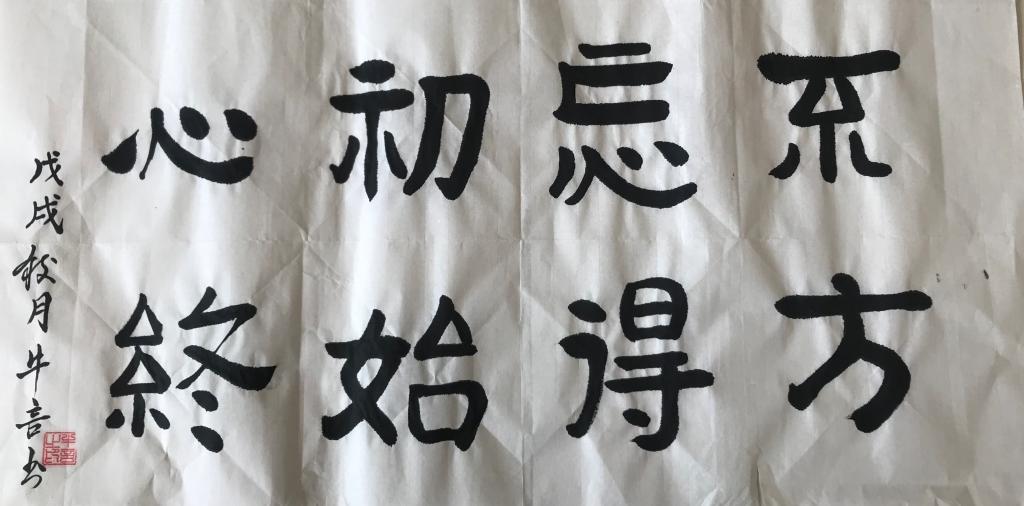 不忘初心
方得始終
戊戌秋月牛言书